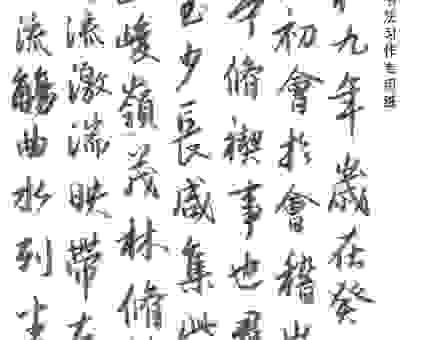 法习作专用纸
九年歲在癸
初會於會稽山
脩禊事也羣
至少長咸集此
峻嶺茂林脩
流激湍映帶左
流觴曲水列坐